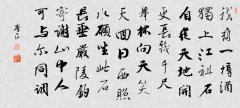 我攜一樽酒
獨上江祖石
自從天地開
更長幾千尺
舉杯向天笑
天回日西照
永願坐此石
長垂嚴陵釣
寄謝山中人
可与尔同調